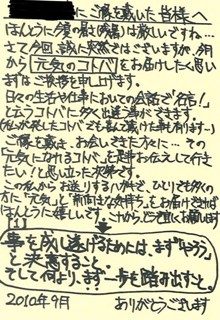 にご縁を戴いた皆様へ
ほんとうに今夏の暑さ(残暑)は厳しいですね…
さて今回、誠に突然ではございますが、今月
から「元気のコトバ」をお届けしたく思い
まずはご挨拶を申し上げます。
日々の生活や仕事においての会話で「名言!」
と云うコトバに多く出逢う事ができます。
(私が発したコトバでも喜んで戴けた事も有ります…)
ご縁を戴き、お会いできた方々に…その
「元気になれるコトバ」を是非お伝えして行き
たい!と思い立った次第です。
この私からお送りするハガキで、ひとりでも多くの
方に「元気」と「前向きな気持ち」をお届けできれば
ほんとうに嬉しいです。これから、どうぞ宜しくお願いします
事を成し遂げるためには、まず「やろう」
と決意すること、
そして何より、まず一歩を踏み出すこと。
2010年9月 ありがとうございます